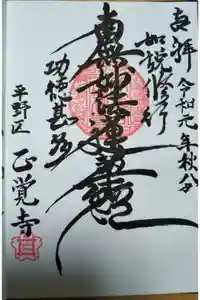 奉拝 令和元年秋分
如説修行
南無妙法蓮華経
功徳甚多
平野区
正覚寺